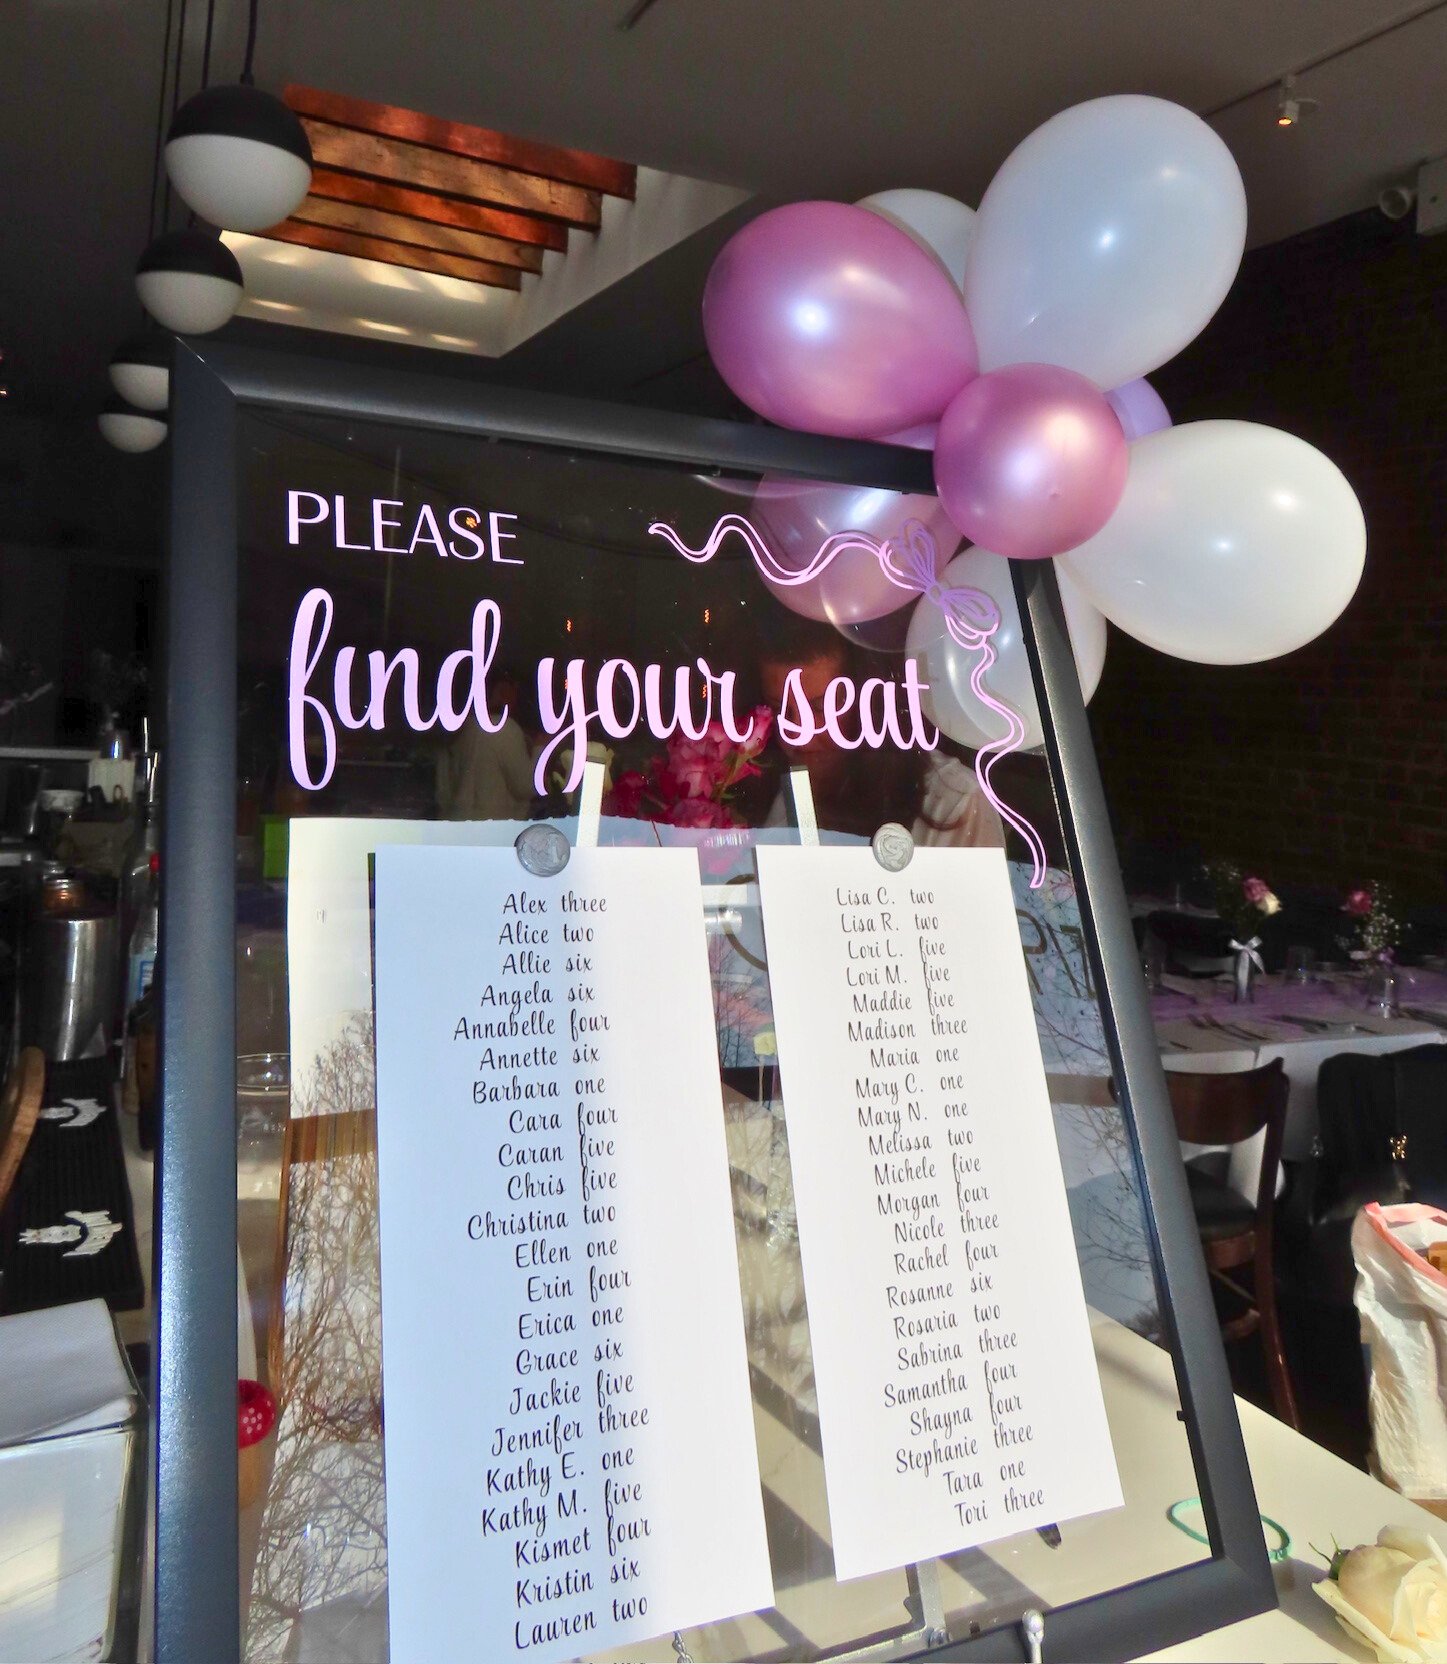 PLEASE
find your seat
Alex three
Alice two
Allie six
Angela six
Annabelle four
Annette six
Barbara one
Cara four
Caran five
Chris five
Christina two
Ellen one
Erin four
Erica one
Grace six
Jackie five
Jennifer three
Kathy E. one
Kathy M. five
Kismet four
Kristin six
Lauren two
Lisa C. two
Lisa R. two
Lori L. five
Lori M. five
Maddie five
Madison three
Maria one
Mary C. one
Mary N. one
Melissa two
Michele five
Morgan four
Nicole three
Rachel four
Rosanne six
Rosaria two
Sabrina three
Samantha four
Shayna four
Stephanie three
Tara one
Tori three